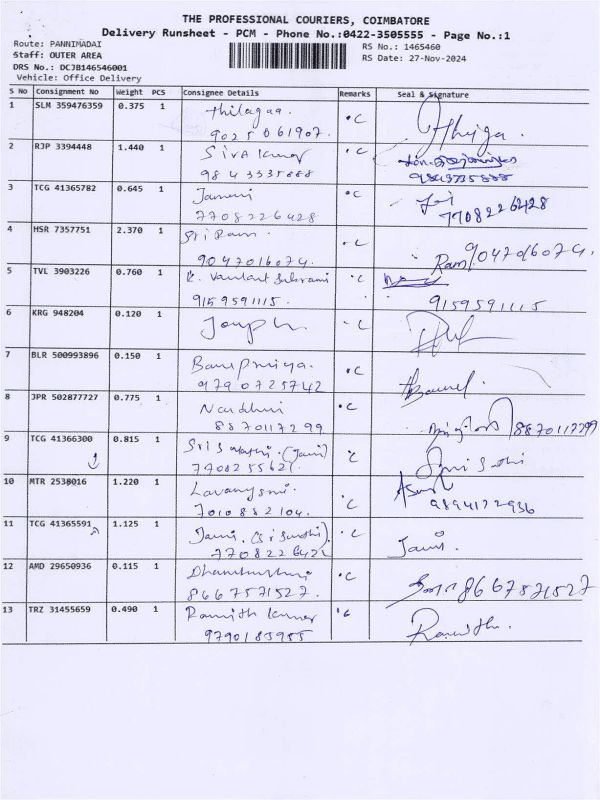 THE PROFESSIONAL COURIERS, COIMBATORE
Delivery Runsheet - PCM - Phone No.:0422-3505555 - Page No.:1
Route: PANNIMADAI
Staff: OUTER AREA
DRS No.: DCJB146546001
Vehicle: Office Delivery
RS No.: 1465460
RS Date: 27-Nov-2024
S No Consignment No Weight PCS Consignee Details Remarks Seal & Signature
1 SLM 359476359 0.375 1 Thilagaa.
9025061907.
2 RJP 3394448 1.440 1 Siva kumar
9843335888 9843335888
3 TCG 41365782 0.645 1
7708226428 7708226428
4 HSR 7357751 2.370 1 Sri Ram.
9047016074. Ram 9047016074.
5 TVL 3903226 0.760 1
9159591115. 9159591115
6 KRG 948204 0.120 1
7 BLR 500993896 0.150 1 Banupriya.
9790725742
8 JPR 502877727 0.775 1
8870117299 8870117299
9 TCG 41366300 0.815 1
10 MTR 2538016 1.220 1
7010882104. 9894172936
11 TCG 41365591 1.125 1
12 AMD 29650936 0.115 1
8667571527. 8667571527
13 TRZ 31455659 0.490 1 Ranjith kumar
9790183955